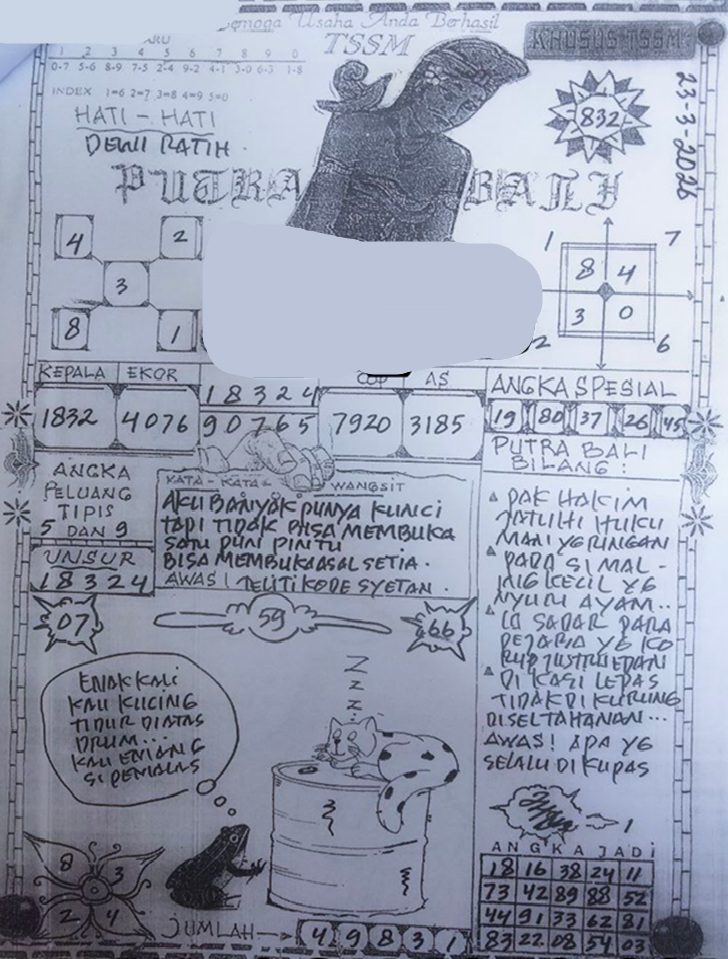 Semoga Usaha Anda Berhasil
TSSM
KHUSUS TSSM
1 2 3 4 5 6 7 8 9 0
0-7 5-6 8-9 7-5 2-4 9-2 4-1 3-0 6-3 1-8
INDEX 1=6 2=7 3=8 4=9 5=0
HATI - HATI
DEWI RATIH.
832
23-3-2026
PUTRA BALI
4 2
3
8 1
1 7
8 4
3 0
2 6
KEPALA EKOR
1832 4076
18324
90765
COP AS
7920 3185
ANGKA SPESIAL
19 80 37 26 45
ANGKA
PELUANG
TIPIS
5 DAN 9
UNSUR
18324
KATA - KATA - WANGSIT
AKU BANYAK PUNYA KUNCI
TAPI TIDAK BISA MEMBUKA
SATU PUN PINTU
BISA MEMBUKA ASAL SETIA.
AWAS! TELITI KODE SYETAN.
PUTRA BALI
BILANG :
PAK HAKIM
JATUHI HUKU
MAN YG RINGAN
PADA SI MAL-
ING KECIL YG
NYURI AYAM..
SADAR PARA
PEJABA YG KO
RUP JUSTRU EDAN
DI KASI LEPAS
TIDAK DI KURUNG
DISELTAHANAN...
AWAS! APA YG
SELALU DI KUPAS
07
59
66
ENAK KALI
KAU KUCING
TIDUR DIATAS
DRUM...
KAU EMANG
SI PEMALAS
Z
Z
Z
8 3
2 4
JUMLAH
4 9 8 3 1
ANGKA JADI
18 16 38 24 11
73 42 89 88 52
44 91 33 62 81
83 22 08 54 03